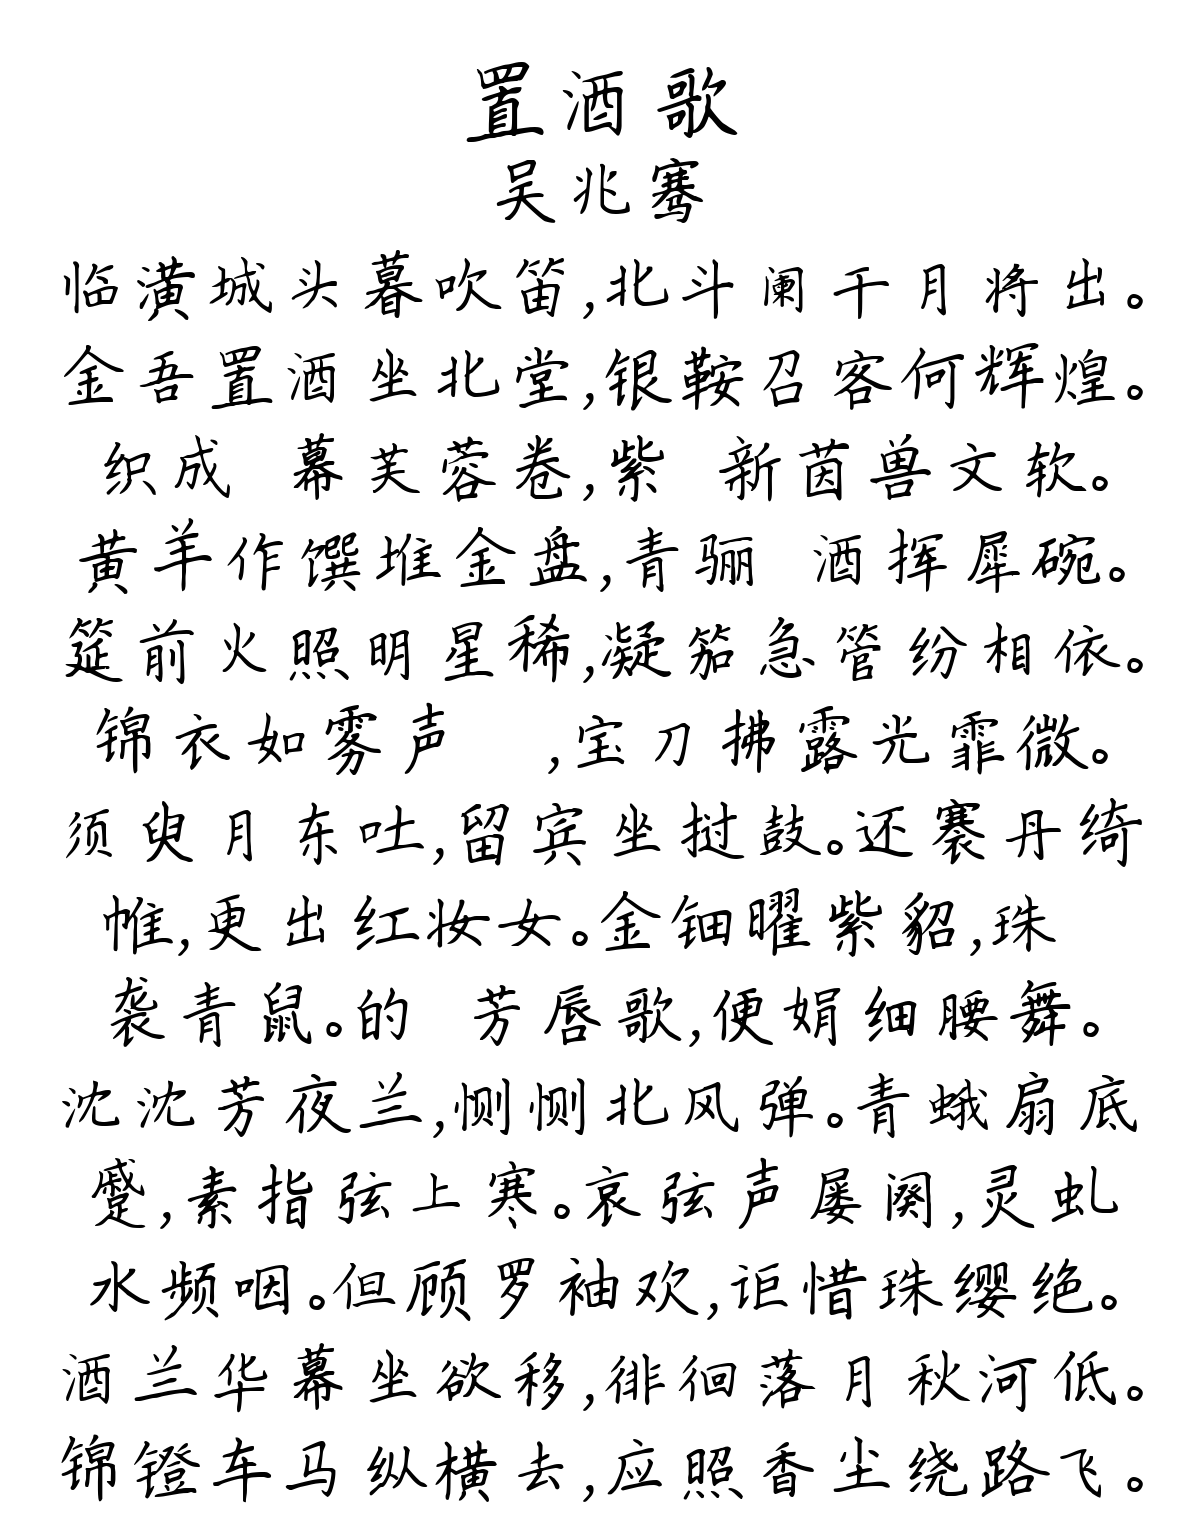 置酒歌
吴兆骞
临潢城头暮吹笛,北斗阑干月将出。
金吾置酒坐北堂,银鞍召客何辉煌。
织成 幕芙蓉卷,紫 新茵兽文软。
黄羊作馔堆金盘,青骊 酒挥犀碗。
筵前火照明星稀,凝笳急管纷相依。
锦衣如雾声 ,宝刀拂露光霏微。
须臾月东吐,留宾坐挝鼓。还褰丹绮
帷,更出红妆女。金钿曜紫貂,珠
袭青鼠。的 芳唇歌,便娟细腰舞。
沈沈芳夜兰,恻恻北风弹。青蛾扇底
蹙,素指弦上寒。哀弦声屡阕,灵虬
水频咽。但顾罗袖欢,讵惜珠缨绝。
酒兰华幕坐欲移,徘徊落月秋河低。
锦镫车马纵横去,应照香尘绕路飞。